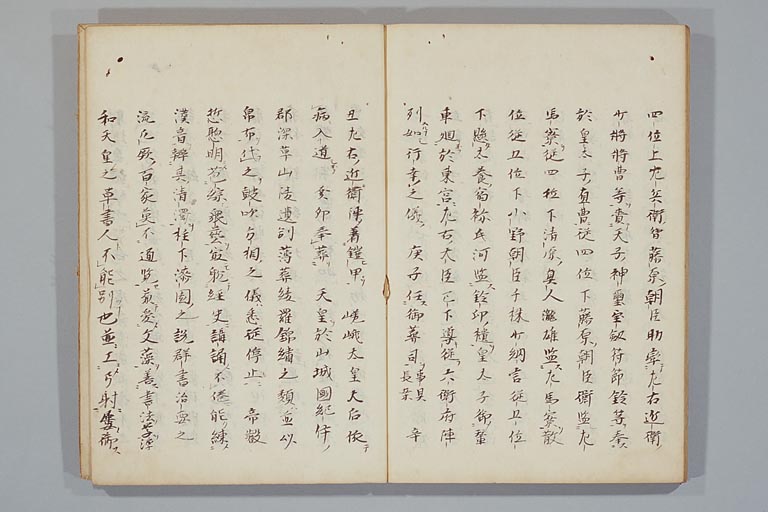 四位上左兵衛督藤原朝臣助率左右近衛
少将将曹等賷天子神璽宝剣符節鈴等奉
於皇太子直曹従四位下藤原朝臣衛監左
馬寮従四位下清滝真人河雄監右馬寮散
位従五位下小野朝臣千株少納言従五位
下 奈良宿祢氏河監鈴印櫃皇太子御輦
車廻於東宮左右大臣已下導従六衛府陣
列如行幸之儀 庚子任御葬司事具長案 辛
丑左右近衛陣着鎧甲 嵯峨太皇大后依
病入道 癸卯奉葬 天皇於山城国紀伊
郡深草山陵遺制薄葬綾羅錦繍之類並以
帛布代之鼓吹方相之儀悉従停止 帝叡
哲聡明苞綜衆芸最耽経史講誦不倦能練
漢音弁其清濁柱下漆園之説群書治要之
流凡厥百家莫不通覧兼愛文藻善書法学淳
和天皇之草書人不能別也並工弓射屡御